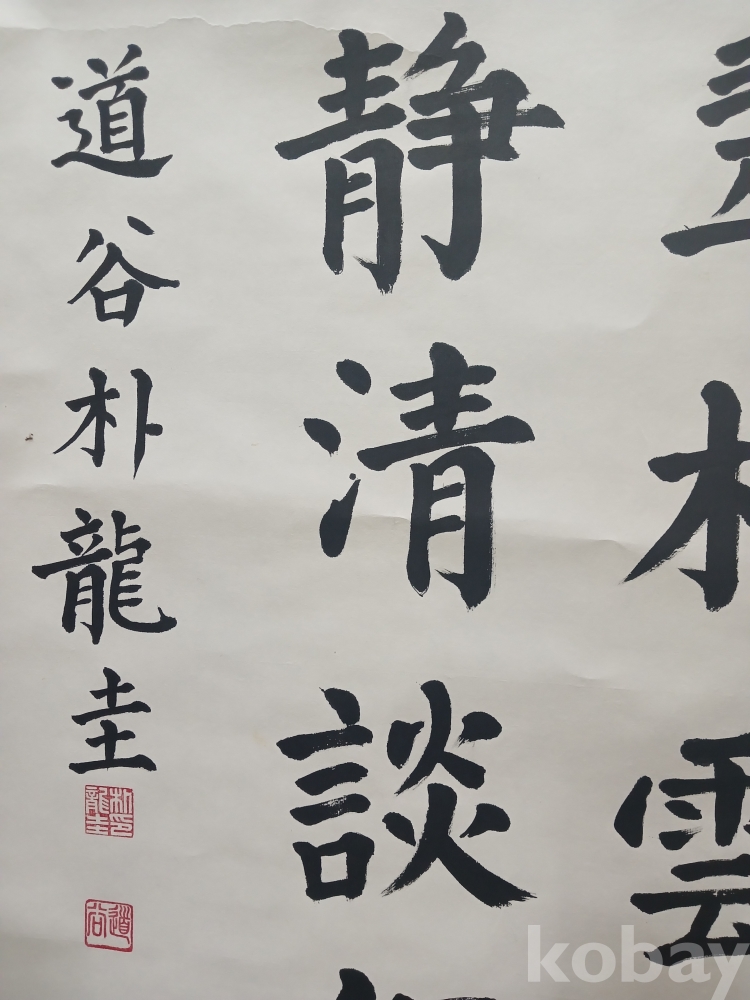 雲
静清談
道谷朴龍圭
朴印龍圭
道谷
kobay